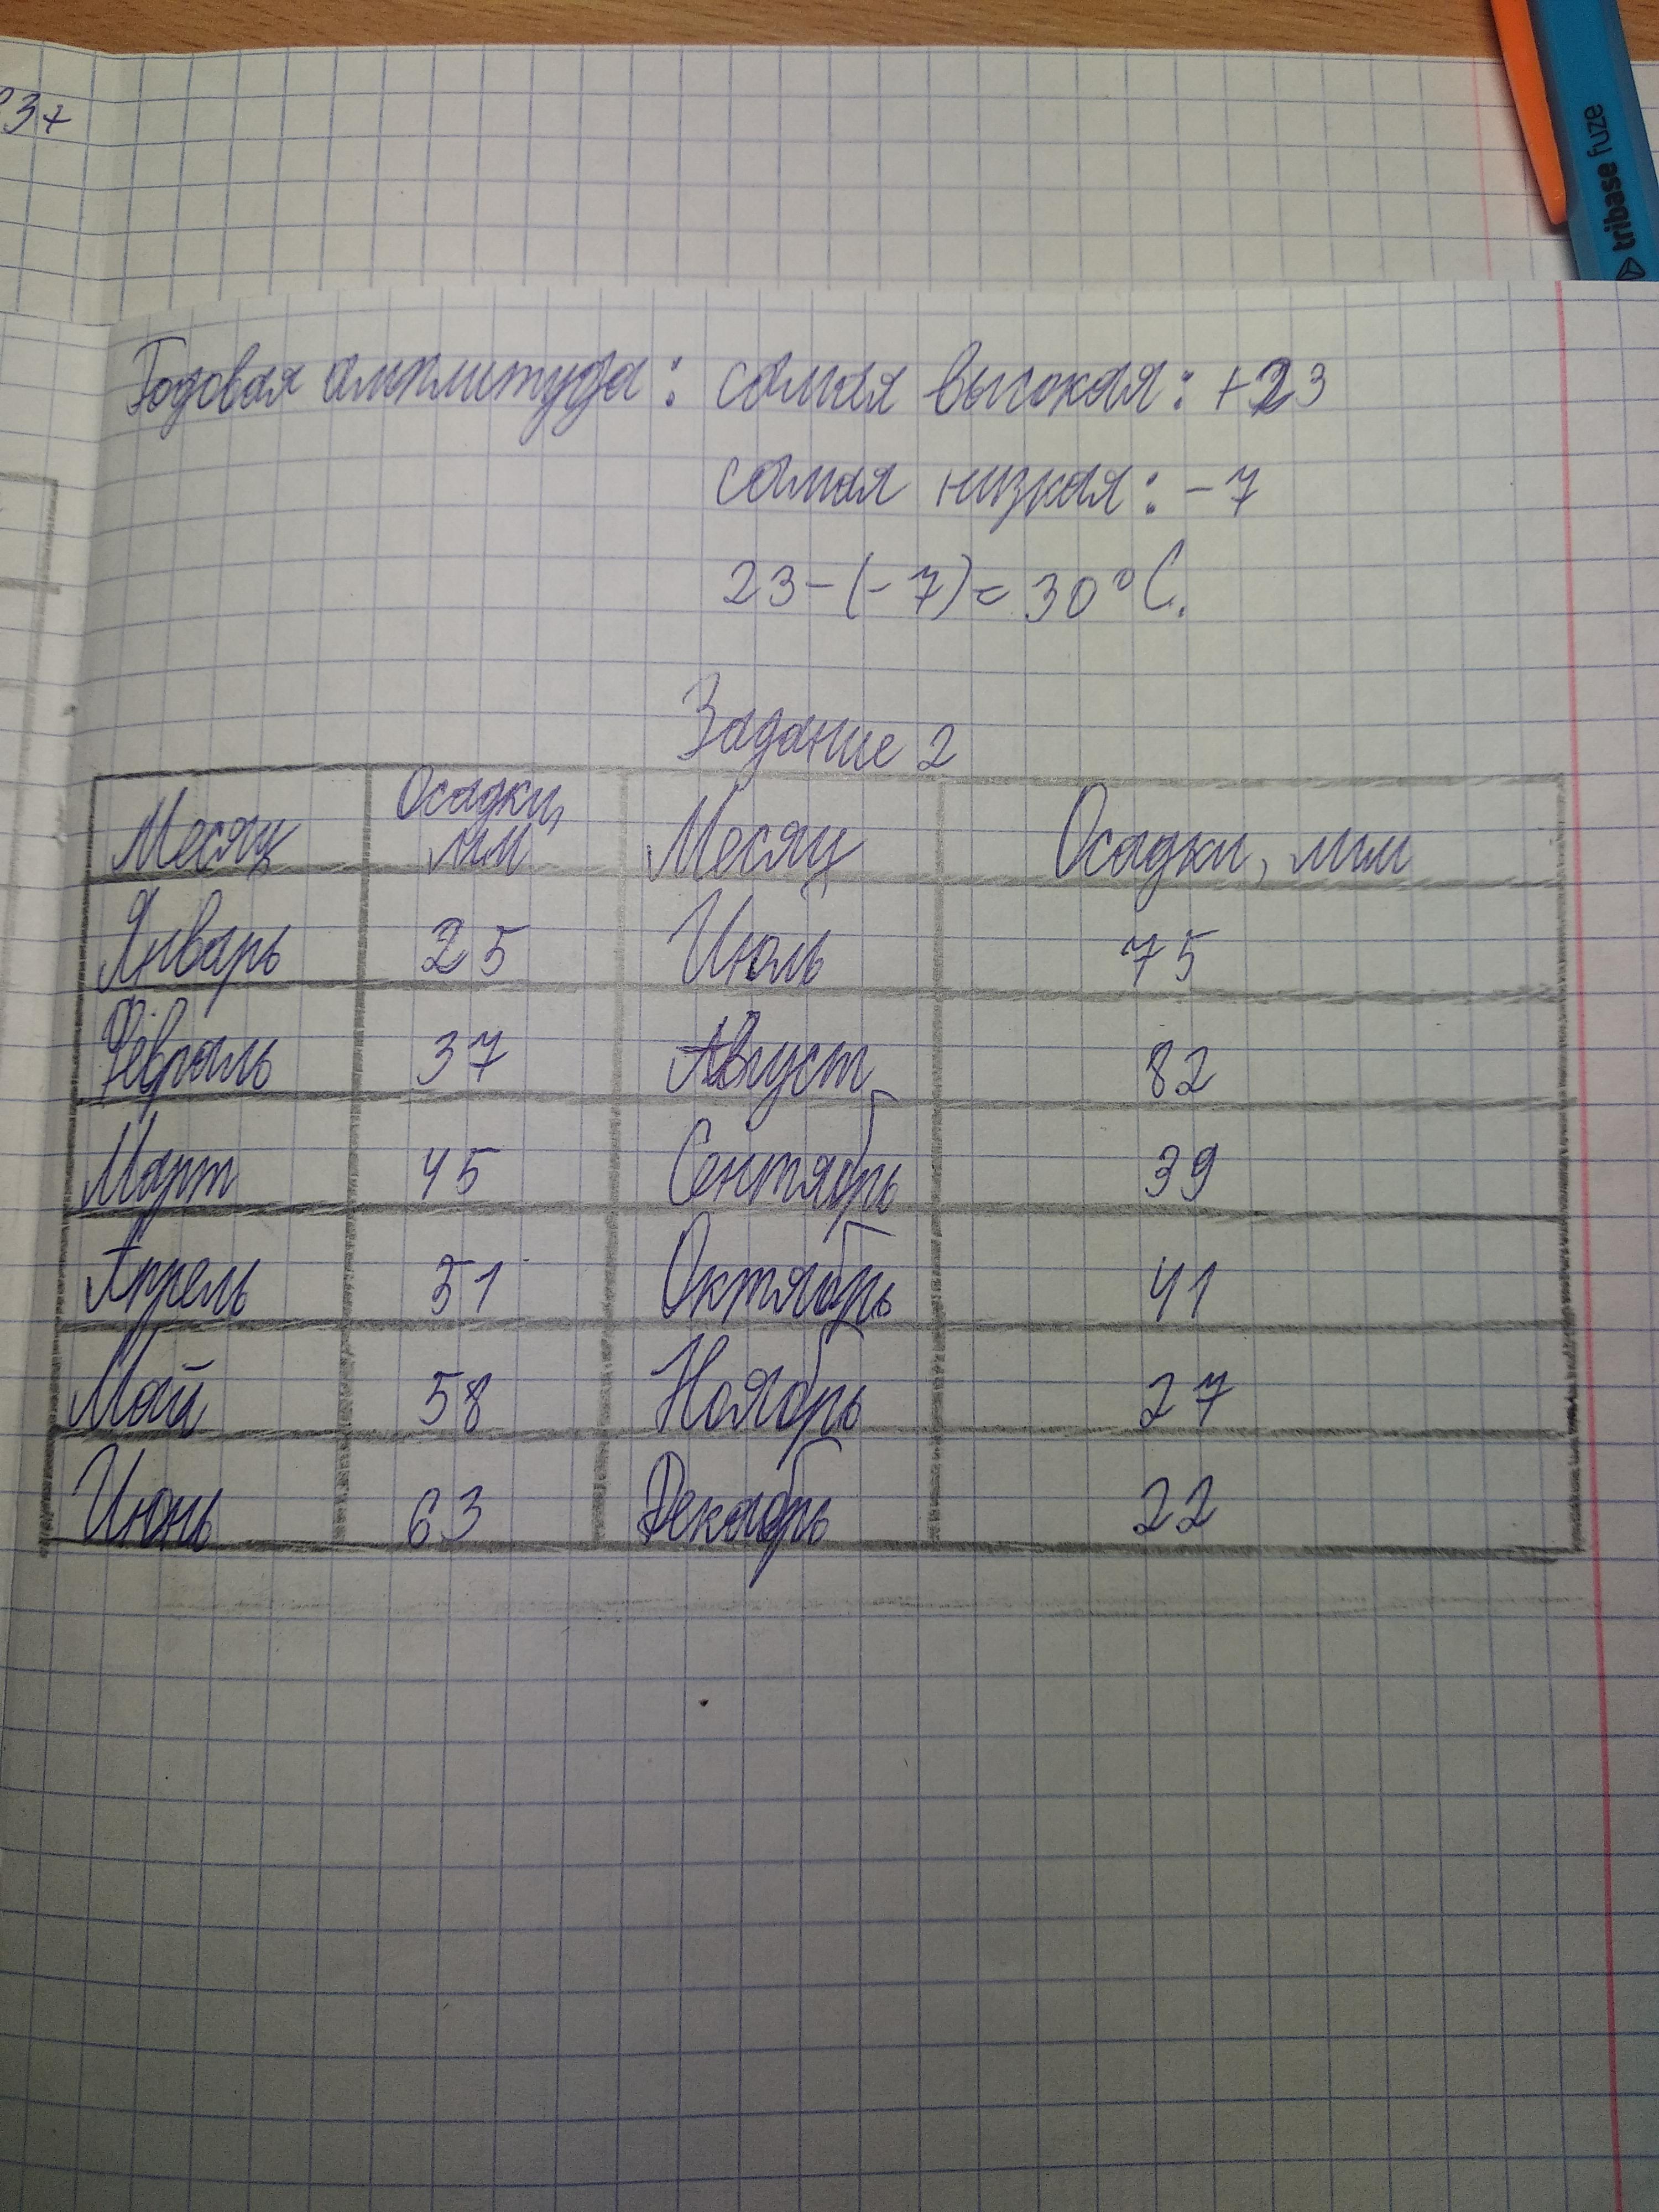 37
tribase fuze
Годовая амплитуда: самая высокая: +23
самая низкая: -7
23-(-7)= 30°C.
Задание 2
Месяц Осадки, мм Месяц Осадки, мм
Январь 25 Июль 75
Февраль 37 Август 82
Март 45 Сентябрь 39
Апрель 51 Октябрь 41
Май 58 Ноябрь 27
Июнь 63 Декабрь 22